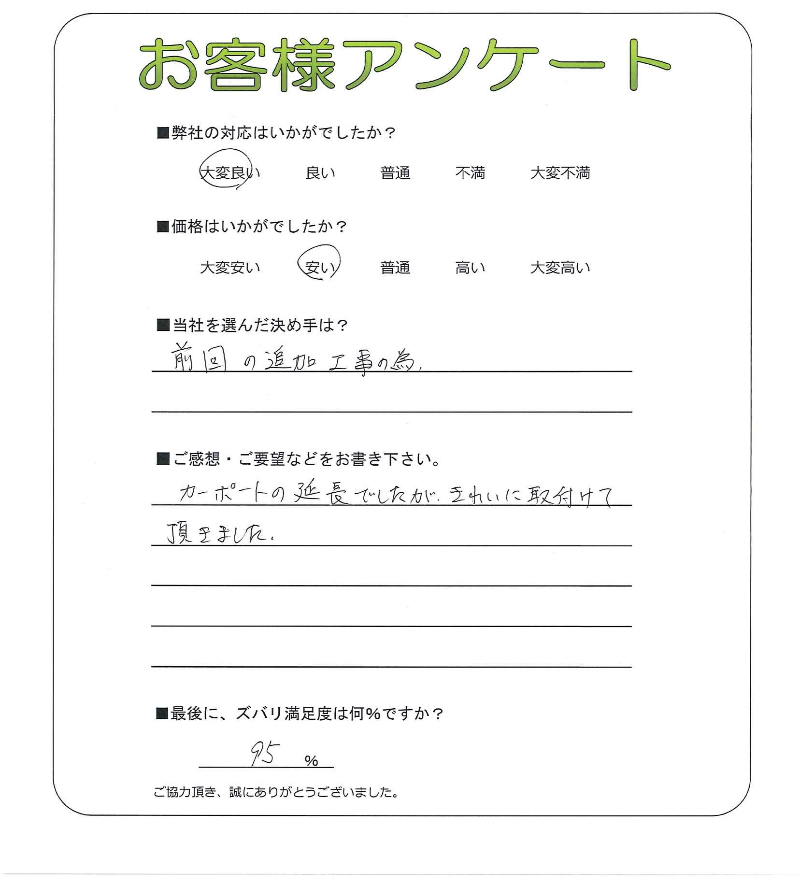 お客様アンケート
■弊社の対応はいかがでしたか？
大変良い 良い 普通 不満 大変不満
■価格はいかがでしたか？
大変安い 安い 普通 高い 大変高い
■当社を選んだ決め手は？
前回の追加工事の為.
■ご感想・ご要望などをお書き下さい。
カーポートの延長でしたが、きれいに取付けて
頂きました.
■最後に、ズバリ満足度は何%ですか？
95 %
ご協力頂き、誠にありがとうございました。